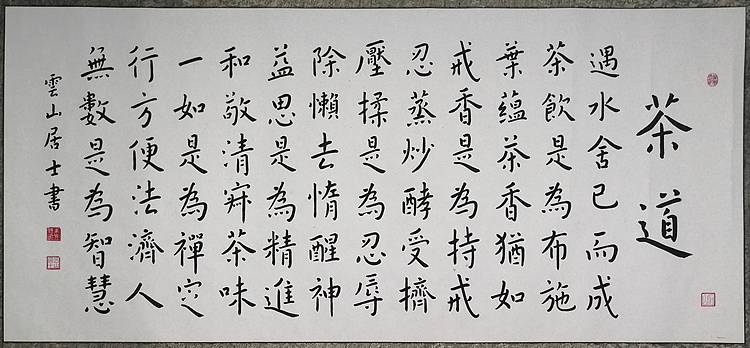 茶道
遇水舍己而成
茶飲是為布施
葉蘊茶香猶如
戒香是為持戒
忍蒸炒酵受擠
壓揉是為忍辱
除懶去惰醒神
益思是為精進
和敬清寂茶味
一如是為禪定
行方便法濟人
無數是為智慧
雲山居士書